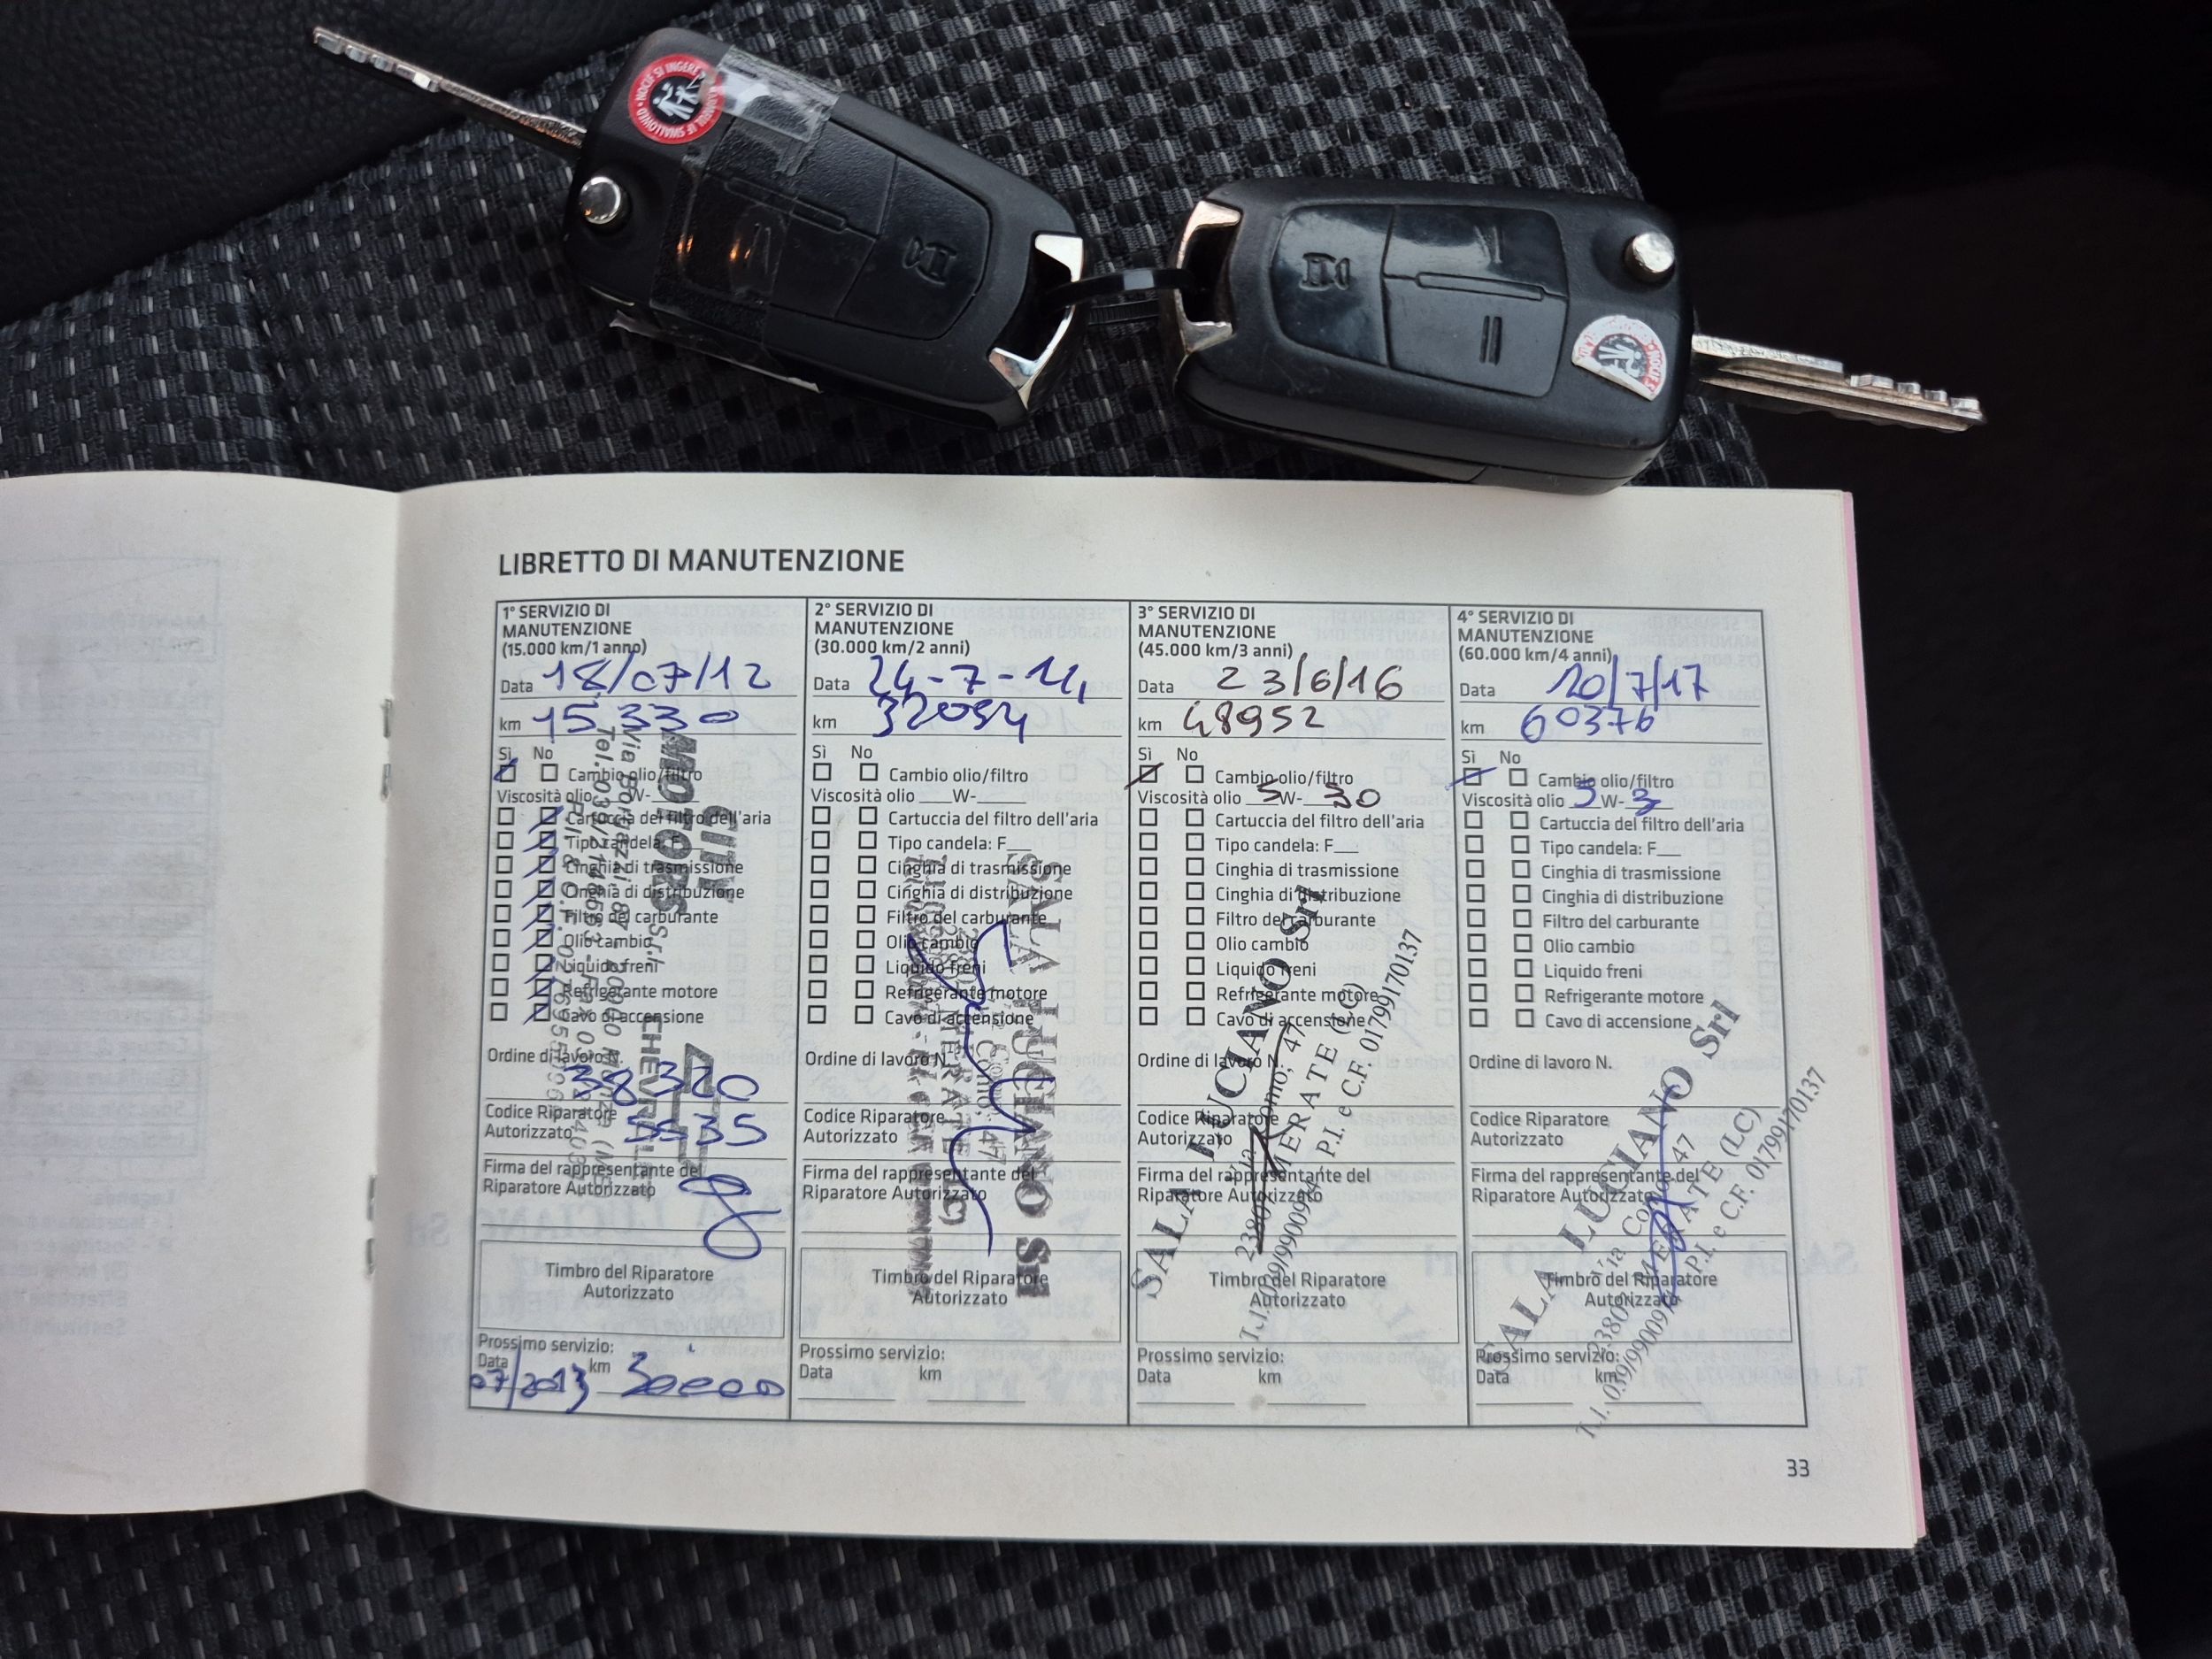 NOCIF SI INGERE
HARMFUL IF SWALLOWED
LIBRETTO DI MANUTENZIONE
1° SERVIZIO DI
MANUTENZIONE
(15.000 km/1 anno)
Data 18/07/12
km 15330
Sì No
Cambio olio/filtro
Viscosità olio W-
Cartuccia del filtro dell'aria
Tipo candela: F
Cinghia di trasmissione
Cinghia di distribuzione
Filtro del carburante
Olio cambio
Liquido freni
Refrigerante motore
Cavo di accensione
Ordine di lavoro N.
38320
Codice Riparatore
Autorizzato
Firma del rappresentante del
Riparatore Autorizzato
Timbro del Riparatore
Autorizzato
Prossimo servizio:
Data km
07/2013 30000
CITY
MOTORS S.r.l.
CHEVROLET
2° SERVIZIO DI
MANUTENZIONE
(30.000 km/2 anni)
Data
km
Sì No
Cambio olio/filtro
Viscosità olio W-
Cartuccia del filtro dell'aria
Tipo candela: F
Cinghia di trasmissione
Cinghia di distribuzione
Filtro del carburante
Olio cambio
Liquido freni
Refrigerante motore
Cavo di accensione
Ordine di lavoro N.
Codice Riparatore
Autorizzato
Firma del rappresentante del
Riparatore Autorizzato
Timbro del Riparatore
Autorizzato
Prossimo servizio:
Data km
SALA LUCIANO Srl
3° SERVIZIO DI
MANUTENZIONE
(45.000 km/3 anni)
Data 23/6/16
km 48952
Sì No
Cambio olio/filtro
Viscosità olio 5W-30
Cartuccia del filtro dell'aria
Tipo candela: F
Cinghia di trasmissione
Cinghia di distribuzione
Filtro del carburante
Olio cambio
Liquido freni
Refrigerante motore
Cavo di accensione
Ordine di lavoro N.
Codice Riparatore
Autorizzato
Firma del rappresentante del
Riparatore Autorizzato
Timbro del Riparatore
Autorizzato
Prossimo servizio:
Data km
SALA LUCIANO Srl
Via Como, 47
MERATE (LC)
P.I. e C.F. 01799170137
4° SERVIZIO DI
MANUTENZIONE
(60.000 km/4 anni)
Data 20/7/17
km 60376
Sì No
Cambio olio/filtro
Viscosità olio 5W-3
Cartuccia del filtro dell'aria
Tipo candela: F
Cinghia di trasmissione
Cinghia di distribuzione
Filtro del carburante
Olio cambio
Liquido freni
Refrigerante motore
Cavo di accensione
Ordine di lavoro N.
Codice Riparatore
Autorizzato
Firma del rappresentante del
Riparatore Autorizzato
Timbro del Riparatore
Autorizzato
Prossimo servizio:
Data km
SALA LUCIANO Srl
Via Como, 47
MERATE (LC)
P.I. e C.F. 01799170137
33